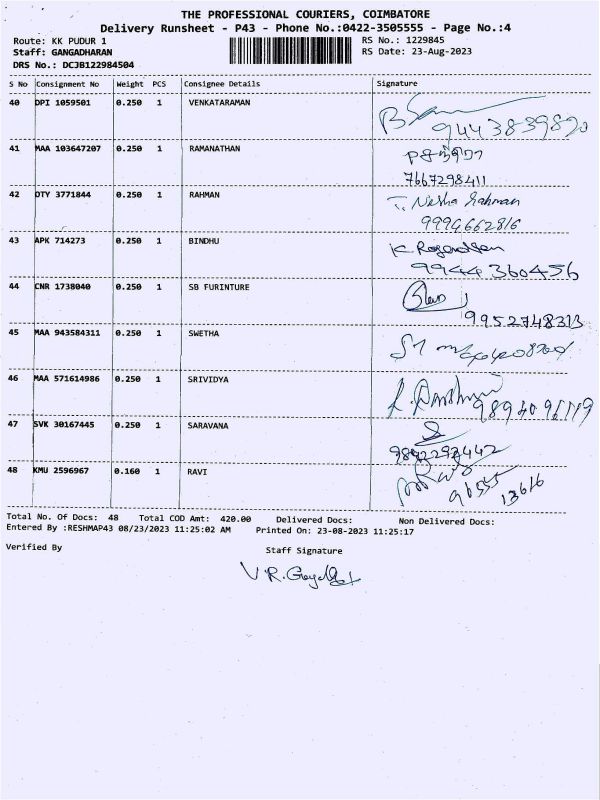 THE PROFESSIONAL COURIERS, COIMBATORE
Delivery Runsheet - P43 - Phone No.:0422-3505555 - Page No.:4
Route: KK PUDUR 1 RS No.: 1229845
Staff: GANGADHARAN RS Date: 23-Aug-2023
DRS No.: DCJB122984504
S No Consignment No Weight PCS Consignee Details Signature
40 DPI 1059501 0.250 1 VENKATARAMAN
9443839890
41 MAA 103647207 0.250 1 RAMANATHAN
7667298411
42 OTY 3771844 0.250 1 RAHMAN T. Nisha Rahman
9994662816
43 APK 714273 0.250 1 BINDHU K.
9944360456
44 CNR 1738040 0.250 1 SB FURINTURE
9952748313
45 MAA 943584311 0.250 1 SWETHA
46 MAA 571614986 0.250 1 SRIVIDYA
47 SVK 30167445 0.250 1 SARAVANA
9892297442
48 KMU 2596967 0.160 1 RAVI
96555 13616
Total No. Of Docs: 48 Total COD Amt: 420.00 Delivered Docs: Non Delivered Docs:
Entered By :RESHMAP43 08/23/2023 11:25:02 AM Printed On: 23-08-2023 11:25:17
Verified By Staff Signature
V.R.